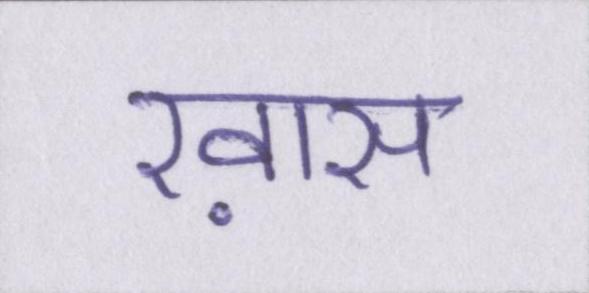 ख़ास